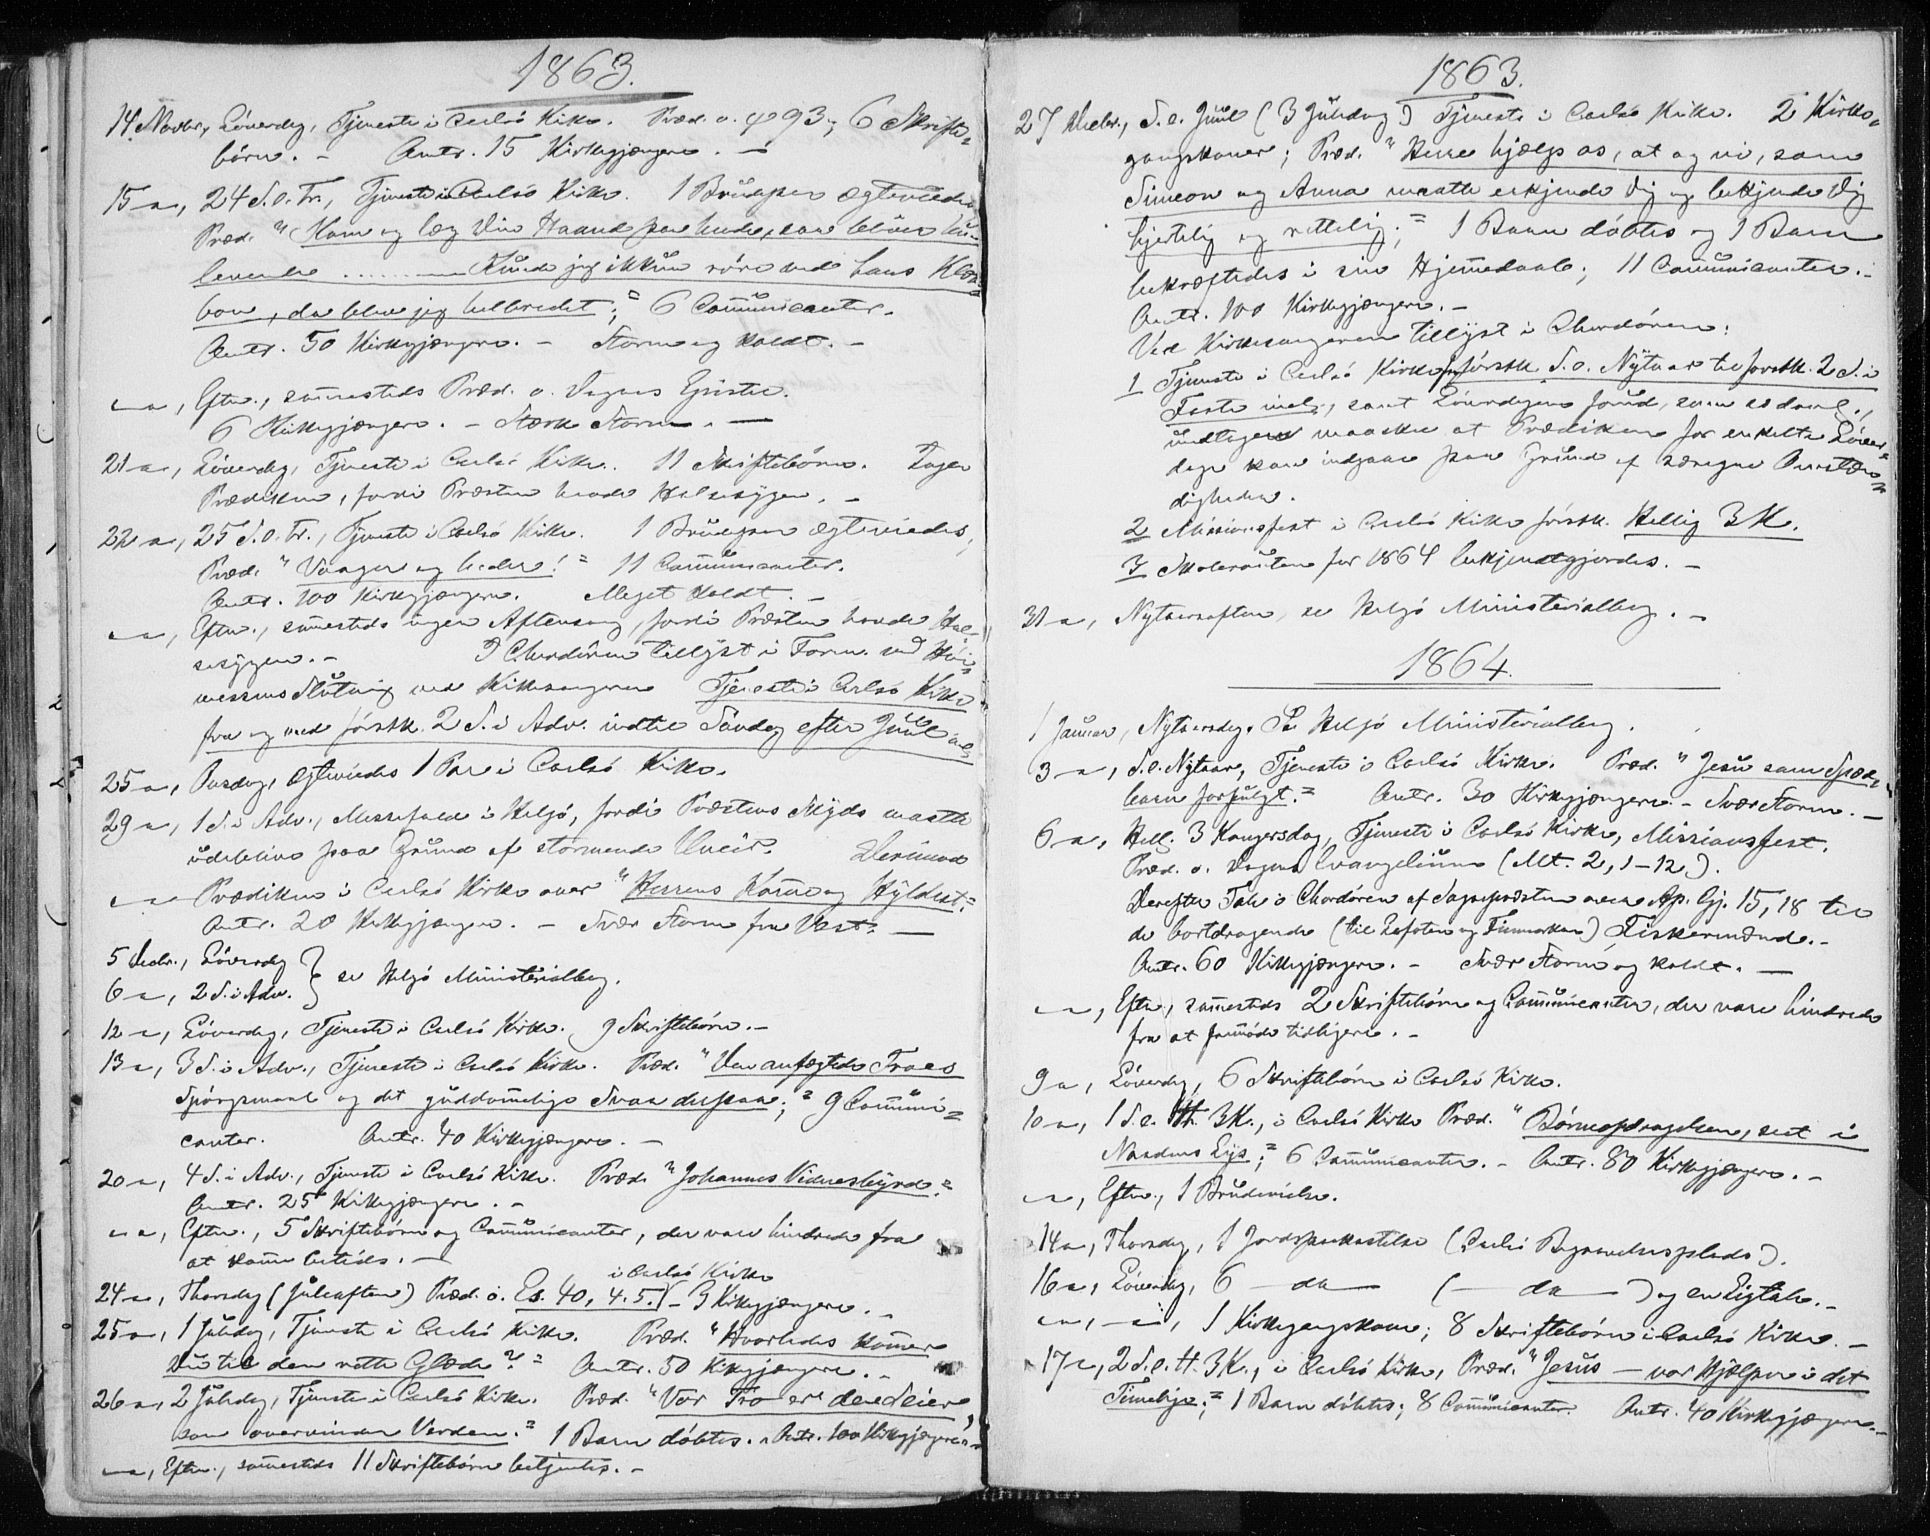 1863.
14 Novbr, Löverdg, Tjeneste i Carlsö Kirke. Præd. o. ψ 93; 6 Skrifte-
börn. - Antr. 15 Kirkegjængere. -
15 —, 24 S. e. Tr., Tjeneste i Carlsö Kirke. 1 Brudepar ægteviedes
Præd. "Kom og læg Din Haand paa hende, saa bliver hun
levende ........ — Kunde jeg ikkun röre ved hans Klæde-
bon, da blev jeg helbredet"; 6 Communicanter.
Antr. 50 Kirkegjængere. - Storm og koldt. -
— , Eftm., sammesteds Præd. o. Dagens Epistel.
6 Kirkegjængere. - Stærk Storm. -
21 —, Löverdg, Tjeneste i Carlsö Kirke. 11 Skriftebörn. Ingen
Prædiken, fordi Præsten havde Halsesygen. -
22 —, 25 S. e. Tr., Tjeneste i Carlsö Kirke. 1 Brudepar ægteviedes,
Præd. "Vaager og beder!" 11 Communicanter.
Antr. 100 Kirkegjængere. Meget koldt. -
— , Eftm., sammesteds ingen Aftensang, fordi Præsten havde Hal-
sesygen. - I Chordören tillyst i Form. ved Höi-
messens Slutning ved Kirkesangeren Tjeneste i Carlsö Kirke
fra og med förstk. 2 S. i Adv. indtil Söndag efter Juul incl.
25 —, Onsdag, ægteviedes 1 Par i Carlsö Kirke.
29 —, 1 S. i Adv., Messefald i Helgö, fordi Præstens Skyds maatte
udeblive paa Grund af stormende Uveir. Derimod
— Prædiken i Carlsö Kirke over "Herrens Komme og Hyldest".
Antr. 20 Kirkegjængere. - Svær Storm fra Vest. -
5 Decbr., Löverdg } se Helgö Ministerialbog.
6 —, 2 S. i Adv.
12 —, Löverdg, Tjeneste i Carlsö Kirke. 9 Skriftebörn. -
13 —, 3 S. i Adv., Tjeneste i Carlsö Kirke. Præd. "Den anfægtede Troes
Spörgsmaal og det guddommelige Svar derpaa"; 9 Communi-
canter. Antr. 40 Kirkegjængere. -
20 —, 4 S. i Adv., Tjeneste i Carlsö Kirke. Præd. "Johannes Vidnesbyrd".
Antr. 25 Kirkegjængere. -
— , Eftm., 5 Skriftebörn og Communicanter, der vare hindrede fra
at komme betids. -
24 —, Thorsdg (Juleaften) Præd. o. Es. 40, 4.5. i Carlsö Kirke - 9 Kirkegjængere. -
25 —, 1 Juledag, Tjeneste i Carlsö Kirke. Præd. "Hvorledes kommer
Du til den rette Glæde?" Antr. 50 Kirkegjængere. -
26 —, 2 Juledag, Tjeneste i Carlsö Kirke. Præd. "Vor Tro er den Seier,
som overvinder Verden." 1 Barn döbtes. Antr. 100 Kirkegjængere. -
— , Eftm., sammesteds 11 Skriftebörn betjentes. -
1863.
27 Decbr., S. e. Juul (3 Juledag) Tjeneste i Carlsö Kirke. 2 Kirke-
gangskoner; Præd. "Herre hjælp os, at og vi, som
Simeon og Anna maatte erkjende Dig og bekjende Dig
hjertelig og rettelig"; 1 Barn döbtes og 1 Barn
bekræftedes i sin Hjemmedaab; 11 Communicanter. -
Antr. 100 Kirkegjængere. -
Ved Kirkesangeren tillyst i Chordören:
1 Tjeneste i Carlsö Kirke fra förstk. S. e. Nytaar til förstk. 2 S. i
Faste incl., samt Löverdagene forud, som sædvanl.,
undtagen maaske at Prædiken for enkelte Löver-
dage kan indgaae paa Grund af særegne Omstæn-
digheder.
2 Missionsfest i Carlsö Kirke förstk. Hellig 3 K.
3 Skoleruten for 1864 bekjendtgjordes. -
31 —, Nytaarsaften, se Helgö Ministerialbog. -
1864.
1 Januar, Nytaarsdag. Se Helgö Ministerialbog.
3 —, S. e. Nytaar, Tjeneste i Carlsö Kirke. Præd. "Jesu som Spæd-
barn forfulgt." Antr. 30 Kirkegjængere. - Svær Storm. -
6 —, Hell. 3 Kongersdag, Tjeneste i Carlsö Kirke, Missionsfest.
Præd. o. Dagens Evangelium (Mt. 2, 1-12).
Derefter Tale i Chordören af Sognepræsten over Ap. Gj. 15, 18 til
de bortdragende (til Lofoten og Finmarken) Fiskermænd. -
Antr. 60 Kirkegjængere. - Svær Storm og koldt. -
— , Eftm., sammesteds 2 Skriftebörn og Communicanter, der vare hindrede
fra at fremmöde tidligere. -
9 —, Löverdg, 6 Skriftebörn i Carlsö Kirke.
10 —, 1 S. e. H. 3 K., i Carlsö Kirke Præd. "Börneopdragelsen, seet i
Naadens Lys"; 6 Communicanter. - Antr. 80 Kirkegjængere. -
— , Eftm., 1 Brudevielse.
14 —, Thorsdg, 1 Jordspaakastelse (Carlsö Begravelsesplads).
16 —, Löverdg, 6 — do — (— do —) og en Ligtale. -
— , —, 1 Kirkegangskone; 8 Skriftebörn i Carlsö Kirke. -
17 —, 2 S. e. H. 3 K., i Carlsö Kirke, Præd. "Jesus — vor Hjælper i det
Timelige"; 1 Barn döbtes; 8 Communicanter. Antr. 40 Kirkegjængere. -